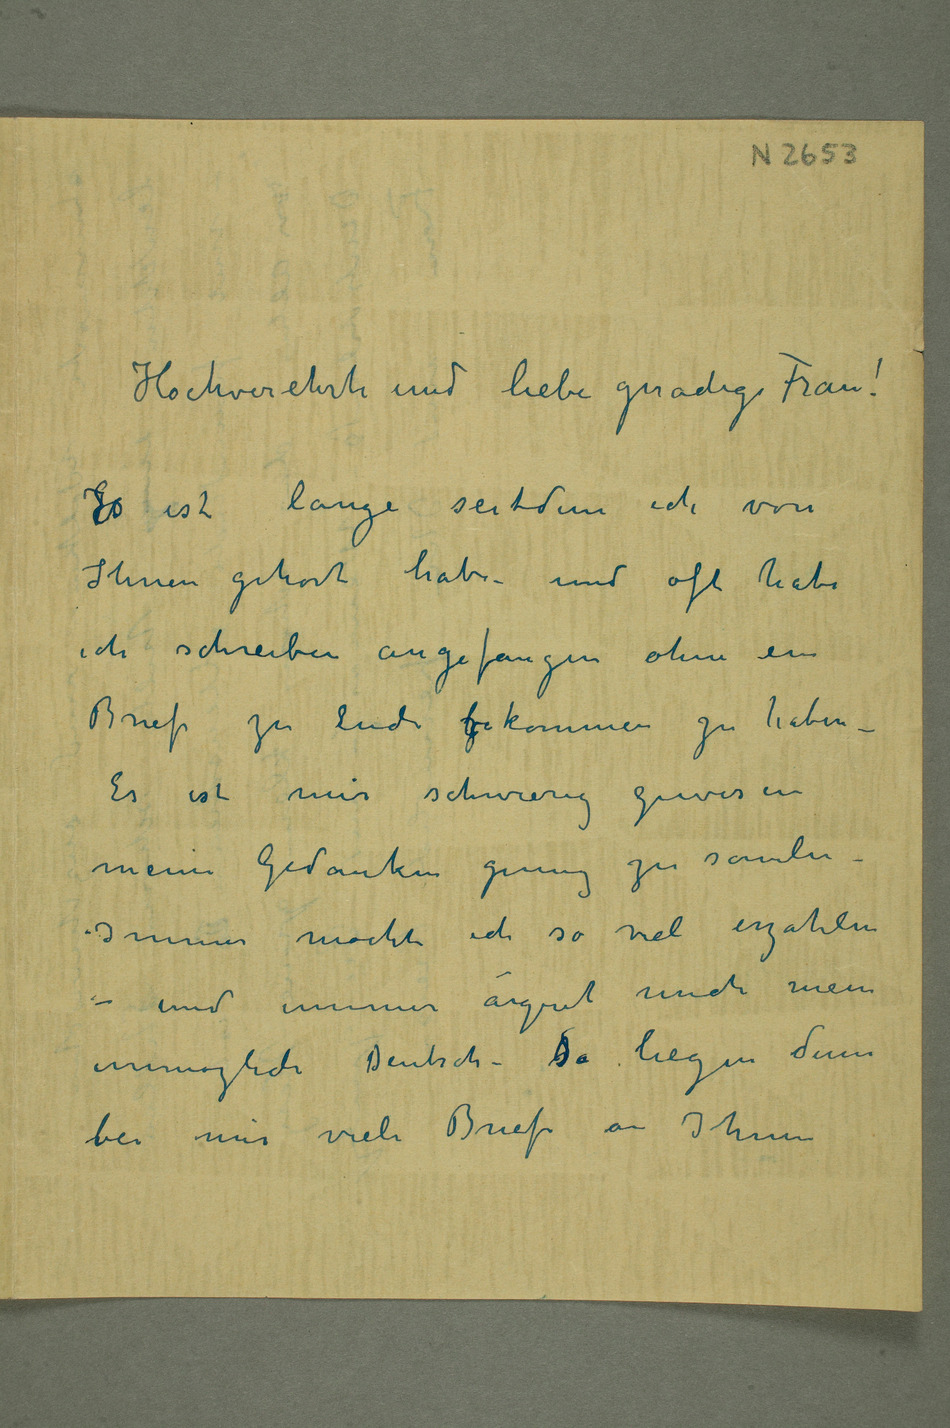 N 2653
Hochverehrte und liebe gnädige Frau!
Es ist lange seitdem ich von
Ihnen gehört habe – und oft habe
ich schreiben angefangen ohne ein
Brief zu Ende bekommen zu haben –
Es ist mir schwierig gewesen
meine Gedanken genug zu samlen –
Immer möchte ich so viel erzählen
– und immer ärgert mich mein
unmögliche Deutsch – Da liegen denn
bei mir viele Briefe an Ihnen